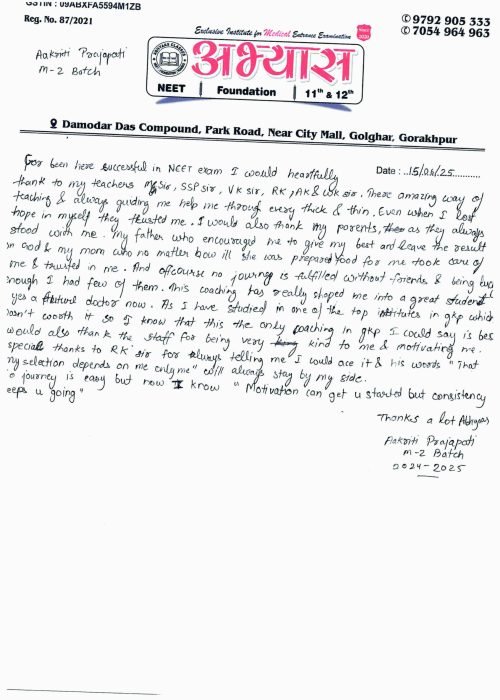 GSTIN : 09ABXFA5594M1ZB
Reg. No. 87/2021
Aakriti Prajapati
M-2 Batch
Exclusive Institute for Medical Entrance Examination
अभ्यास
NEET | Foundation | 11th & 12th
✆ 9792 905 333
✆ 7054 964 963
Damodar Das Compound, Park Road, Near City Mall, Golghar, Gorakhpur
Date : 15/06/25
For been here successful in NEET exam I would heartfully
thank to my teachers sir, SSP sir, VK sir, RK, AK & sir. There amazing way of
teaching & always guiding me help me through every thick & thin. Even when I lost
hope in myself they trusted me. I would also thank my parents, as they always
stood with me. My father who encouraged me to give my best and leave the result
in God & my mom who no matter how ill she was prepared food for me took care of
me & trusted in me. And offcourse no journey is fulfilled without friends & being
nough I had few of them. This coaching has really shaped me into a great student
yes a future doctor now. As I have studied in one of the top institutes in gkp which
asn't worth it so I know that this the only coaching in gkp I could say is bes
would also thank the staff for being very kind to me & motivating me.
special thanks to RK sir for always telling me I could ace it & his words "That
ny selection depends on me only me" will always stay by my side.
o journey is easy but now I know "Motivation can get u started but consistency
eeps u going"
Thanks a lot Abhyaas
Aakriti Prajapati
M-2 Batch
2024-2025